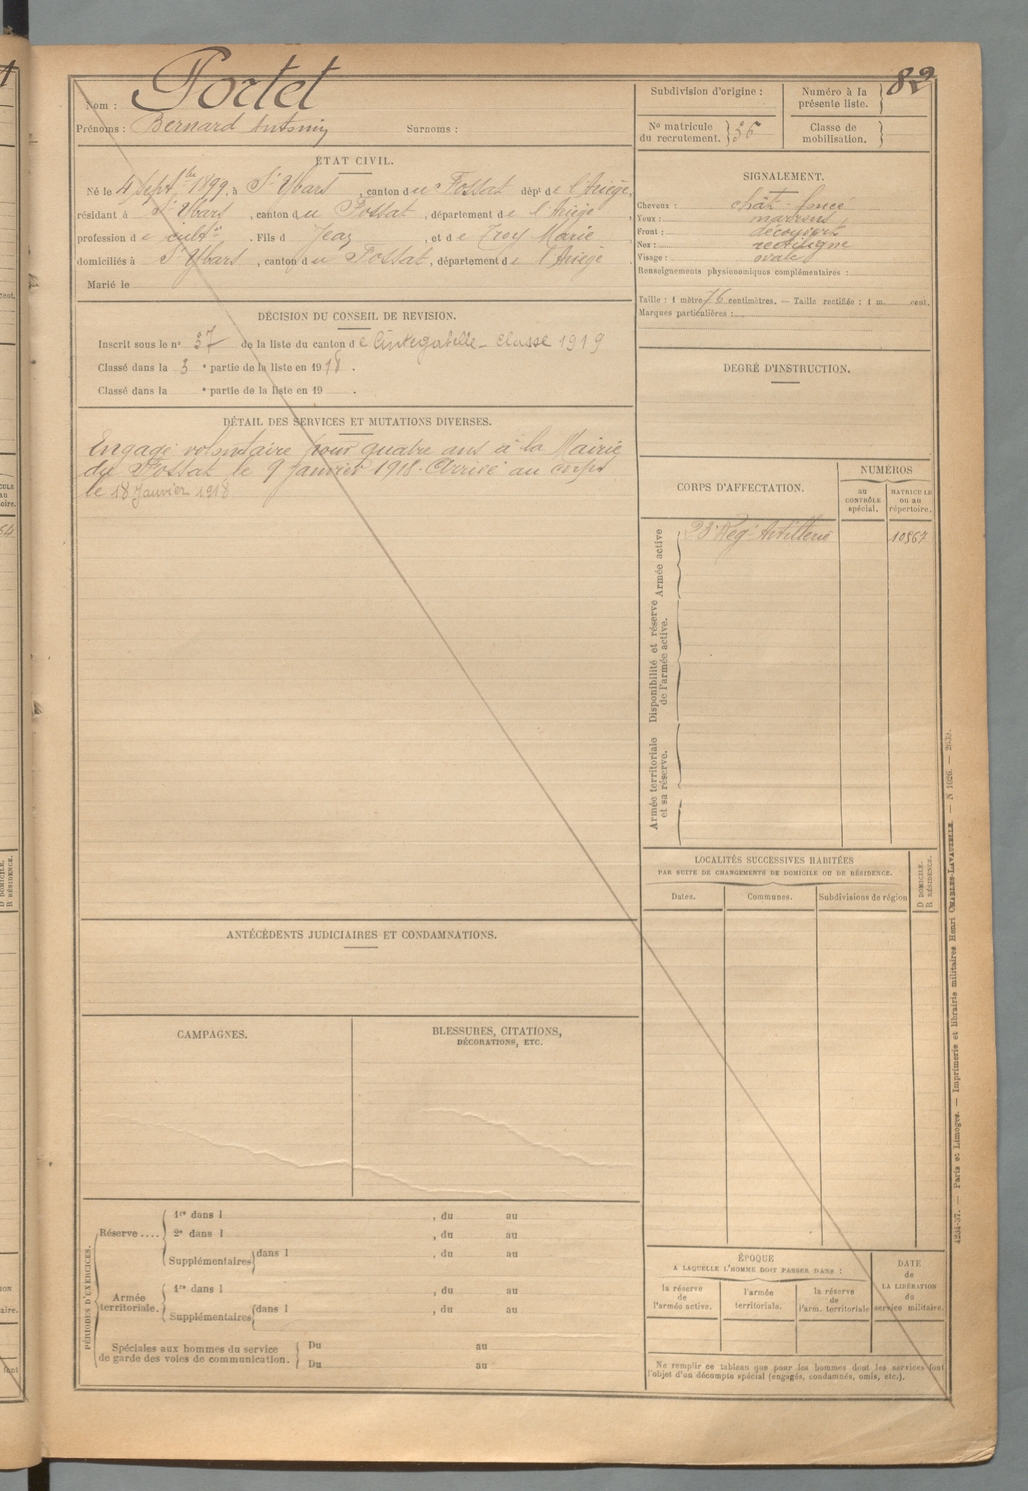 Nom : Portet
Prénoms : Bernard Antonin Surnoms :
ÉTAT CIVIL.
Né le 4 Septbre 1899, à St Ybars, canton du Fossat, dépt de l'Ariège,
résidant à St Ybars, canton du Fossat, département de l'Ariège,
profession de cultr. Fils d Jean, et de Troy Marie
domiciliés à St Ybars, canton du Fossat, département de l'Ariège.
Marié le
DÉCISION DU CONSEIL DE REVISION.
Inscrit sous le n° 37 de la liste du canton de Cintegabelle - Classe 1919
Classé dans la 3e partie de la liste en 1918.
Classé dans la e partie de la liste en 19 .
DÉTAIL DES SERVICES ET MUTATIONS DIVERSES.
Engagé volontaire pour quatre ans à la Mairie
du Fossat le 9 Janvier 1918. Arrivé au corps
le 18 Janvier 1918
ANTÉCÉDENTS JUDICIAIRES ET CONDAMNATIONS.
CAMPAGNES.
BLESSURES, CITATIONS,
DÉCORATIONS, ETC.
PÉRIODES D'EXERCICES.
Réserve ....
1re dans l , du au
2e dans l , du au
Supplémentaires dans l , du au
Armée
territoriale.
1re dans l , du au
Supplémentaires dans l , du au
Spéciales aux hommes du service
de garde des voies de communication.
Du au
Du au
Subdivision d'origine :
Numéro à la
présente liste. 82
N° matricule
du recrutement. 36
Classe de
mobilisation.
SIGNALEMENT.
Cheveux : chât. foncé
Yeux : marrons
Front : découvert
Nez : rectiligne
Visage : ovale
Renseignements physionomiques complémentaires :
Taille : 1 mètre 76 centimètres. — Taille rectifiée : 1 m. cent.
Marques particulières :
DEGRÉ D'INSTRUCTION.
CORPS D'AFFECTATION.
NUMÉROS
AU
CONTRÔLE
spécial.
MATRICULE
ou au
répertoire.
Armée active
23e Rég. Artillerie 10567
Disponibilité et réserve
de l'armée active.
Armée territoriale
et sa réserve.
LOCALITÉS SUCCESSIVES HABITÉES
PAR SUITE DE CHANGEMENTS DE DOMICILE OU DE RÉSIDENCE.
Dates. Communes. Subdivisions de région
D DOMICILE.
R RÉSIDENCE.
ÉPOQUE
A LAQUELLE L'HOMME DOIT PASSER DANS :
la réserve
de
l'armée active.
l'armée
territoriale.
la réserve
de
l'arm. territoriale
DATE
de
LA LIBÉRATION
du
service militaire.
Ne remplir ce tableau que pour les hommes dont les services font
l'objet d'un décompte spécial (engagés, condamnés, omis, etc.).
4234-37. — Paris et Limoges. — Imprimerie et librairie militaires Henri CHARLES-LAVAUZELLE. — N 1026. —